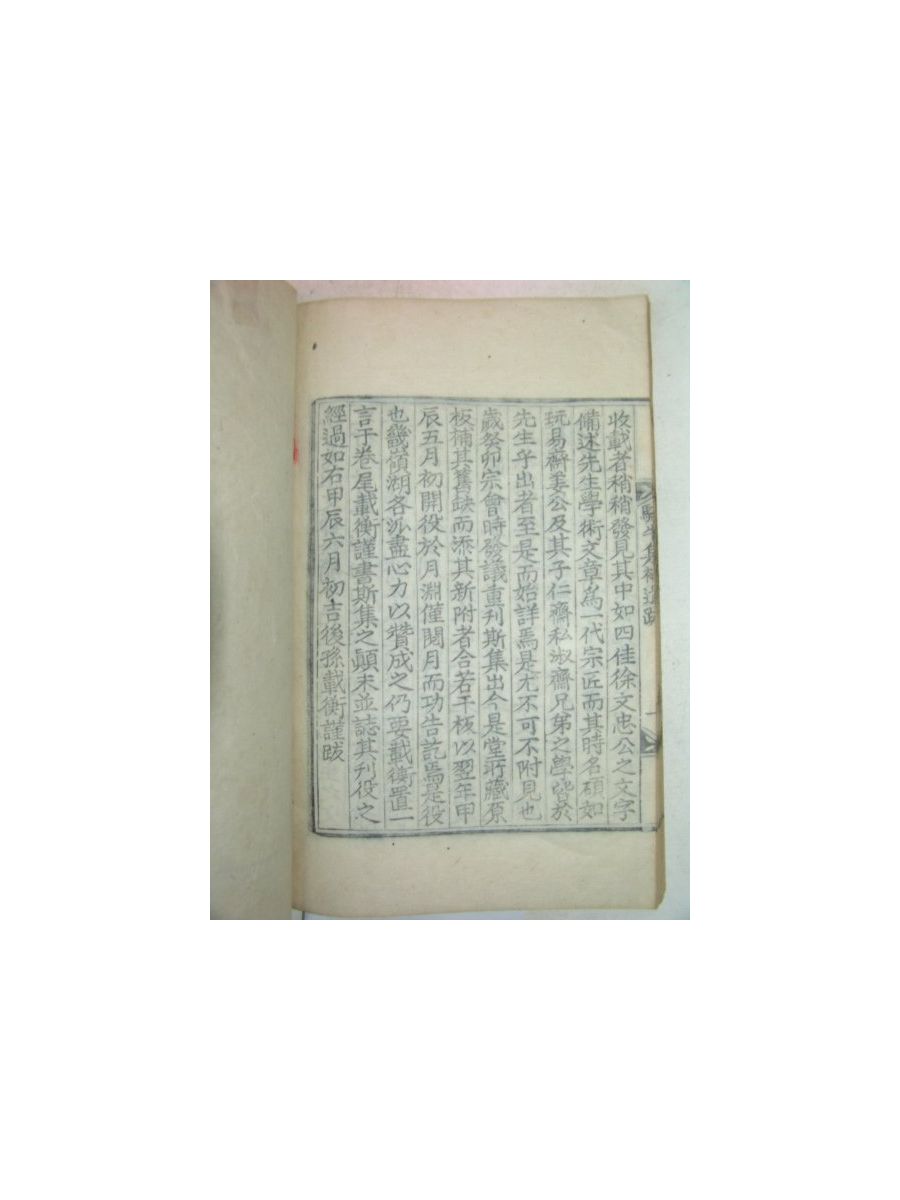 收載者稍稍發見其中如四佳徐文忠公之文字
備述先生學術文章爲一代宗匠而其時名碩如
玩易齋姜公及其子仁齋私淑齋兄弟之學皆於
先生乎出者至是而始詳焉是尤不可不附見也
歲癸卯宗會時發議重刊斯集出今是堂所藏原
板補其舊缺而添其新附者合若干板以翌年甲
辰五月初開役於月淵僅閱月而功告訖焉是役
也畿嶺湖各派盡心力以贊成之仍要載衡置一
言于卷尾載衡謹書斯集之顚末並誌其刊役之
經過如右甲辰六月初吉後孫載衡謹跋